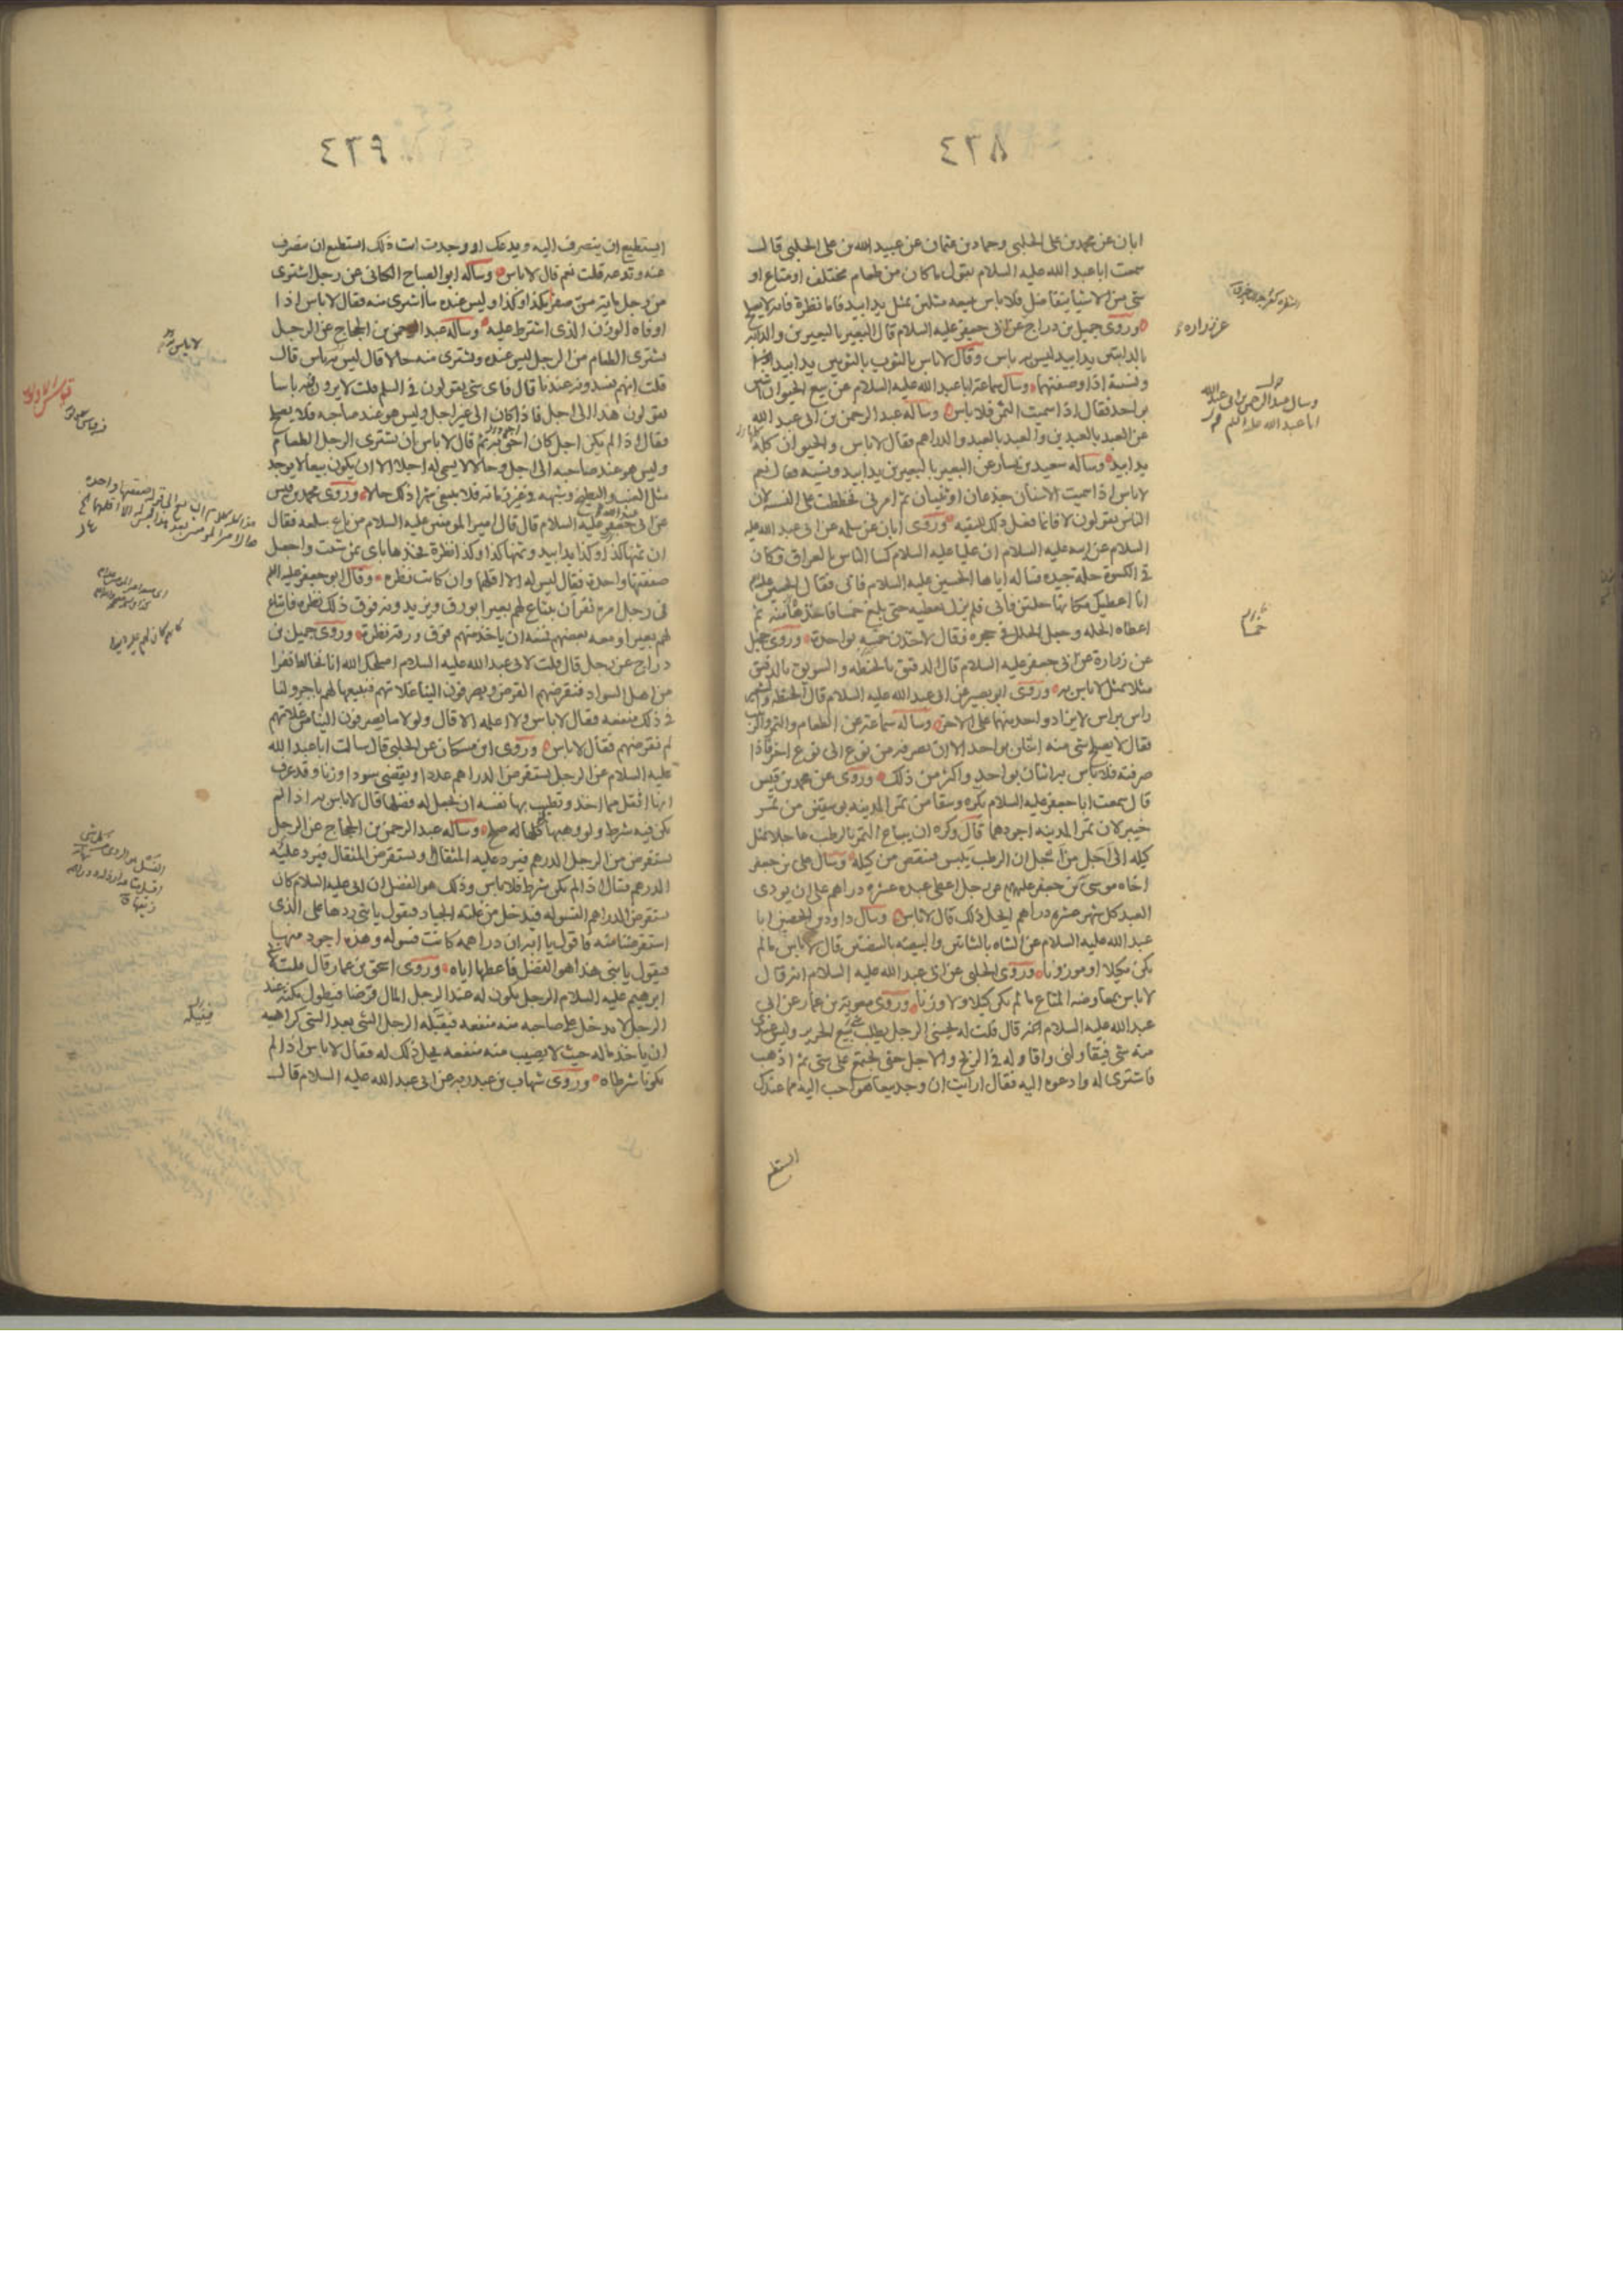 ٤٣٨
ابان عن محمد بن على الحلبى وحماد بن عثمان عن عبيد الله بن على الحلبى قال
سمعت ابا عبد الله عليه السلام يقول ما كان من طعام مختلف او متاع او
شى من الاشيا يتفاضل فلا باس ببيعه مثلين بمثل يدا بيد فاما نظرة فانه لا يصلح
وروى جميل بن دراج عن ابى جعفر عليه السلام قال البعير بالبعيرين والدابه
بالدابتين يدا بيد ليس به باس وقال لا باس بالثوب بالثوبين يدا بيد
ونسية اذا وصفتهما وسال سماعة ابا عبد الله عليه السلام عن بيع الحيوان اثنين
بواحد فقال اذا سميت الثمن فلا باس وساله عبد الرحمن بن ابى عبد الله
عن العبد بالعبدين والعبد بالعبد والدراهم فقال لا باس والحيوان كله
يدا بيد وساله سعيد بن يسار عن البعير بالبعيرين يدا بيد ونسيه فقال نعم
لا باس اذا سميت الاسنان جذعان او ثنيان ثم امرنى فخططت على النسيه لان
الناس يقولون لا فانما فعل ذلك للتقيه وروى ابان عن سلمه عن ابى عبد الله عليه
السلام عن ابيه عليه السلام ان عليا عليه السلام كسا الناس بالعراق وكان
فى الكسوة حلة جيده فساله اياها الحسين عليه السلام فابى فقال الحسين
انا اعطيك مكانها حلتين فابى فلم يزل يعطيه حتى بلغ خمسا فاخذها منه ثم
اعطاه الحله وجعل الحلل فى حجره فقال لاخذن خمسه بواحدة وروى جميل
عن زرارة عن ابى جعفر عليه السلام قال الدقيق بالحنطه والسويق بالدقيق
مثلا بمثل لا باس به وروى ابو بصير عن ابى عبد الله عليه السلام قال الحنطه والشعير
راس براس لا يزاد واحد منهما على الاخر وساله سماعة عن الطعام والتمر والزبيب
فقال لا يصلح شى منه اثنان بواحد الا ان تصرفه من نوع الى نوع اخر فاذا
صرفته فلا باس به اثنان بواحد واكثر من ذلك وروى عن محمد بن قيس
قال سمعت ابا جعفر عليه السلام يكره وسقا من تمر المدينه بوسقين من تمر
خيبر لان تمر المدينه اجودهما قال وكره ان يباع التمر بالرطب عاجلا بمثل
كيله الى اجل من اجل ان الرطب ييبس فينقص من كيله وسال على بن جعفر
اخاه موسى بن جعفر عليهم عن رجل اعطى عبده عشرة دراهم على ان يودى
العبد كل شهر عشرة دراهم ايحل ذلك قال لا باس وسال داود بن الحصين ابا
عبد الله عليه السلام عن الشاه بالشاتين والبيضه بالبيضتين قال لا باس ما لم
يكن مكيلا او موزونا وروى الحلبى عن ابى عبد الله عليه السلام انه قال
لا باس بمعاوضه المتاع ما لم يكن كيلا ولا وزنا وروى معوية بن عمار عن ابى
عبد الله عليه السلام انه قال قلت له يجيئنى الرجل يطلب بيع الحرير وليس عندى
منه شى فيقاولنى واقاوله فى الربح والاجل حتى نجتمع على شى ثم اذهب
فاشترى له وادعوه اليه فقال ارايت ان وجد بيعا هو احب اليه مما عندك
عن زراره
وسال عبد الرحمن بن ابى عبد الله
ابا عبد الله
خمسا
٤٣٩
ايستطيع ان ينصرف اليه ويدعك او وجدت انت ذلك استطيع ان تنصرف
عنه وتدعه قلت نعم قال لا باس وساله ابو الصباح الكنانى عن رجل اشترى
من رجل ماية من صفرا بكذا وكذا وليس عنده ما اشترى منه فقال لا باس اذا
اوفاه الوزن الذى اشترط عليه وساله عبد الرحمن بن الحجاج عن الرجل
يشترى الطعام من الرجل ليس عنده ويشترى منه حالا قال ليس به باس قال
قلت انهم يفسدونه عندنا قال فاى شى يقولون فى السلم قلت لا يرون به باسا
يقولون هذا الى اجل فاذا كان الى غير اجل وليس هو عند صاحبه فلا يصلح
فقال اذا لم يكن اجل كان احق به ثم قال لا باس ان يشترى الرجل الطعام
وليس هو عند صاحبه الى اجل وحالا لا يسمى له اجلا الا ان يكون بيعا لا يوجد
مثل العنب والبطيخ وشبهه فى غير زمانه فلا ينبغى شرا ذلك حالا وروى محمد بن قيس
عن ابى جعفر عليه السلام قال قال امير المومنين عليه السلام من باع سلعه فقال
ان ثمنها كذا وكذا يدا بيد وثمنها كذا وكذا نظرة فخذها باى ثمن شئت واجعل
صفقتها واحدة فقال ليس له الا اقلهما وان كانت نظره وقال ابو جعفر عليه السلم
فى رجل امره نفر ان يبتاع لهم بعيرا بورق ويزيدونه فوق ذلك نظره فابتاع
لهم بعيرا ومعه بعضهم فمنعه ان ياخذ منهم فوق ورقه نظرة وروى جميل بن
دراج عن رجل قال قلت لابى عبد الله عليه السلام اصلحك الله انا نخالط نفرا
من اهل السواد فنقرضهم القرض ويصرفون الينا غلاتهم فنبيعها لهم باجر ولنا
فى ذلك منفعه فقال لا باس ولا اعلمه الا قال ولولا ما يصرفون الينا من غلاتهم
لم نقرضهم فقال لا باس وروى ابن مسكان عن الحلبى قال سالت ابا عبد الله
عليه السلام عن الرجل يستقرض الدراهم عددا ويقضى سودا وزنا وقد عرف
انها اثقل مما اخذ وتطيب بها نفسه ان يجعل له فضلها قال لا باس به اذا لم
يكن فيه شرط ولو وهبها كلها له صلح وساله عبد الرحمن بن الحجاج عن الرجل
يستقرض من الرجل الدرهم فيرد عليه المثقال ويستقرض المثقال فيرد عليه
الدرهم فقال اذا لم يكن شرط فلا باس وذلك هو الفضل ان ابى عليه السلام كان
يستقرض الدراهم الفسوله فيدخل من غلته الجياد فيقول يا بنى ردها على الذى
استقرضنا منه فاقول يا ابه ان دراهمه كانت فسوله وهذه اجود منها
فيقول يا بنى هذا هو الفضل فاعطها اياه وروى اسحق بن عمار قال قلت لابى
ابرهيم عليه السلام الرجل يكون له عند الرجل المال قرضا فيطول مكثه عند
الرجل لا يدخل على صاحبه منه منفعه فينيله الرجل الشى بعد الشى كراهيه
ان ياخذ ماله حيث لا يصيب منه منفعه يحل ذلك له فقال لا باس اذا لم
يكونا شرطاه وروى شهاب بن عبد ربه عن ابى عبد الله عليه السلام قال
لا باس
فينيله